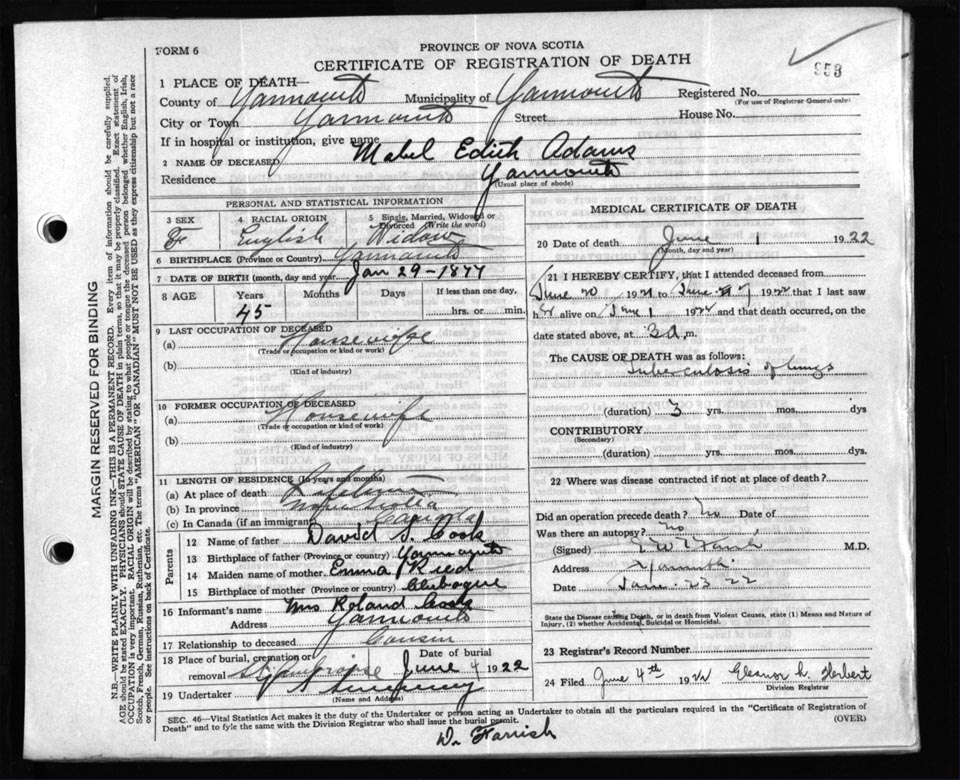 FORM 6
PROVINCE OF NOVA SCOTIA
CERTIFICATE OF REGISTRATION OF DEATH
953
1 PLACE OF DEATH—
County of Yarmouth Municipality of Yarmouth Registered No.
(For use of Registrar General only)
City or Town Yarmouth Street House No.
If in hospital or institution, give name
2 NAME OF DECEASED Mabel Edith Adams
Residence Yarmouth
(Usual place of abode)
PERSONAL AND STATISTICAL INFORMATION
3 SEX F 4 RACIAL ORIGIN English 5 Single, Married, Widowed or Divorced (Write the word) Widow
6 BIRTHPLACE (Province or Country) Yarmouth
7 DATE OF BIRTH (month, day and year) Jan 29-1877
8 AGE Years 45 Months Days If less than one day, hrs. or min.
9 LAST OCCUPATION OF DECEASED
(a) Housewife
(Trade or occupation or kind or work)
(b)
(Kind of industry)
10 FORMER OCCUPATION OF DECEASED
(a) Housewife
(Trade or occupation or kind or work)
(b)
(Kind of industry)
11 LENGTH OF RESIDENCE (In years and months)
(a) At place of death
(b) In province Nova Scotia
(c) In Canada (if an immigrant) Canada
Parents
12 Name of father David S. Cook
13 Birthplace of father (Province or country) Yarmouth
14 Maiden name of mother Emma Reed
15 Birthplace of mother (Province or country) Chebogue
16 Informant's name Mrs Roland Cook
Address Yarmouth
17 Relationship to deceased Cousin
18 Place of burial, cremation or removal Date of burial June 4 1922
19 Undertaker A Sweeney
(Name and Address)
MEDICAL CERTIFICATE OF DEATH
20 Date of death June 1 1922
(Month, day and year)
21 I HEREBY CERTIFY, that I attended deceased from
June 20 1921 to June 1922 that I last saw
her alive on June 1 1922 and that death occurred, on the
date stated above, at 3 a. m.
The CAUSE OF DEATH was as follows:
Tuberculosis of lungs
(duration) 3 yrs. mos. dys
CONTRIBUTORY
(Secondary)
(duration) yrs. mos. dys.
22 Where was disease contracted if not at place of death?
Did an operation precede death? No Date of
Was there an autopsy? No
(Signed) M.D.
Address Yarmouth
Date June 23 22
State the Disease causing Death, or in death from Violent Causes, state (1) Means and Nature of
Injury, (2) whether Accidental, Suicidal or Homicidal.
23 Registrar's Record Number
24 Filed June 4th 1922 Eleanor L. Herbert
Division Registrar
SEC. 46—Vital Statistics Act makes it the duty of the Undertaker or person acting as Undertaker to obtain all the particulars required in the "Certificate of Registration of
Death" and to fyle the same with the Division Registrar who shall issue the burial permit. (OVER)
Dr Farrish
MARGIN RESERVED FOR BINDING
N.B.—WRITE PLAINLY WITH UNFADING INK—THIS IS A PERMANENT RECORD. Every item of information should be carefully supplied.
AGE should be stated EXACTLY. PHYSICIANS should STATE CAUSE OF DEATH in plain terms, so that it may be properly classified. Exact statement of
OCCUPATION is very important. RACIAL ORIGIN will be described by stating to what people or tongue the deceased person belonged whether English, Irish,
Scotch, French, German, Russian, Ruthenian, etc. The terms "AMERICAN" or "CANADIAN" MUST NOT BE USED as they express citizenship but not a race
or people. See instructions on back of Certificate.